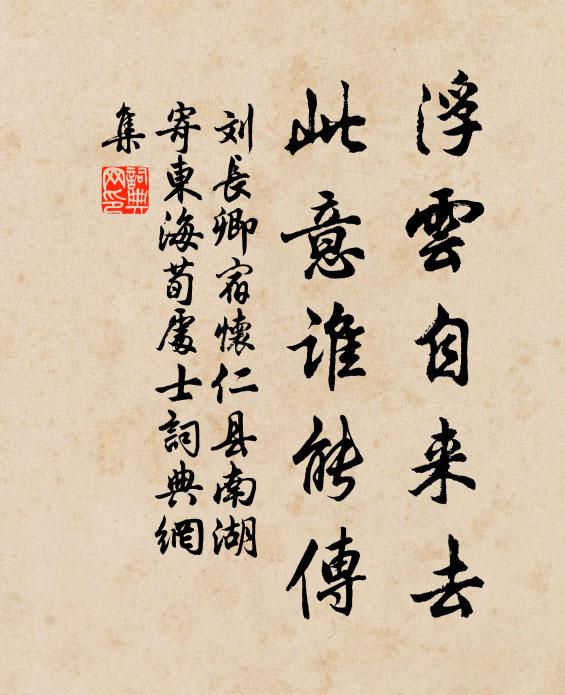 浮雲自来去
此意誰能傳
刘長卿宿懷仁县南湖
寄東海荀處士詞典網
集
詞典
网印